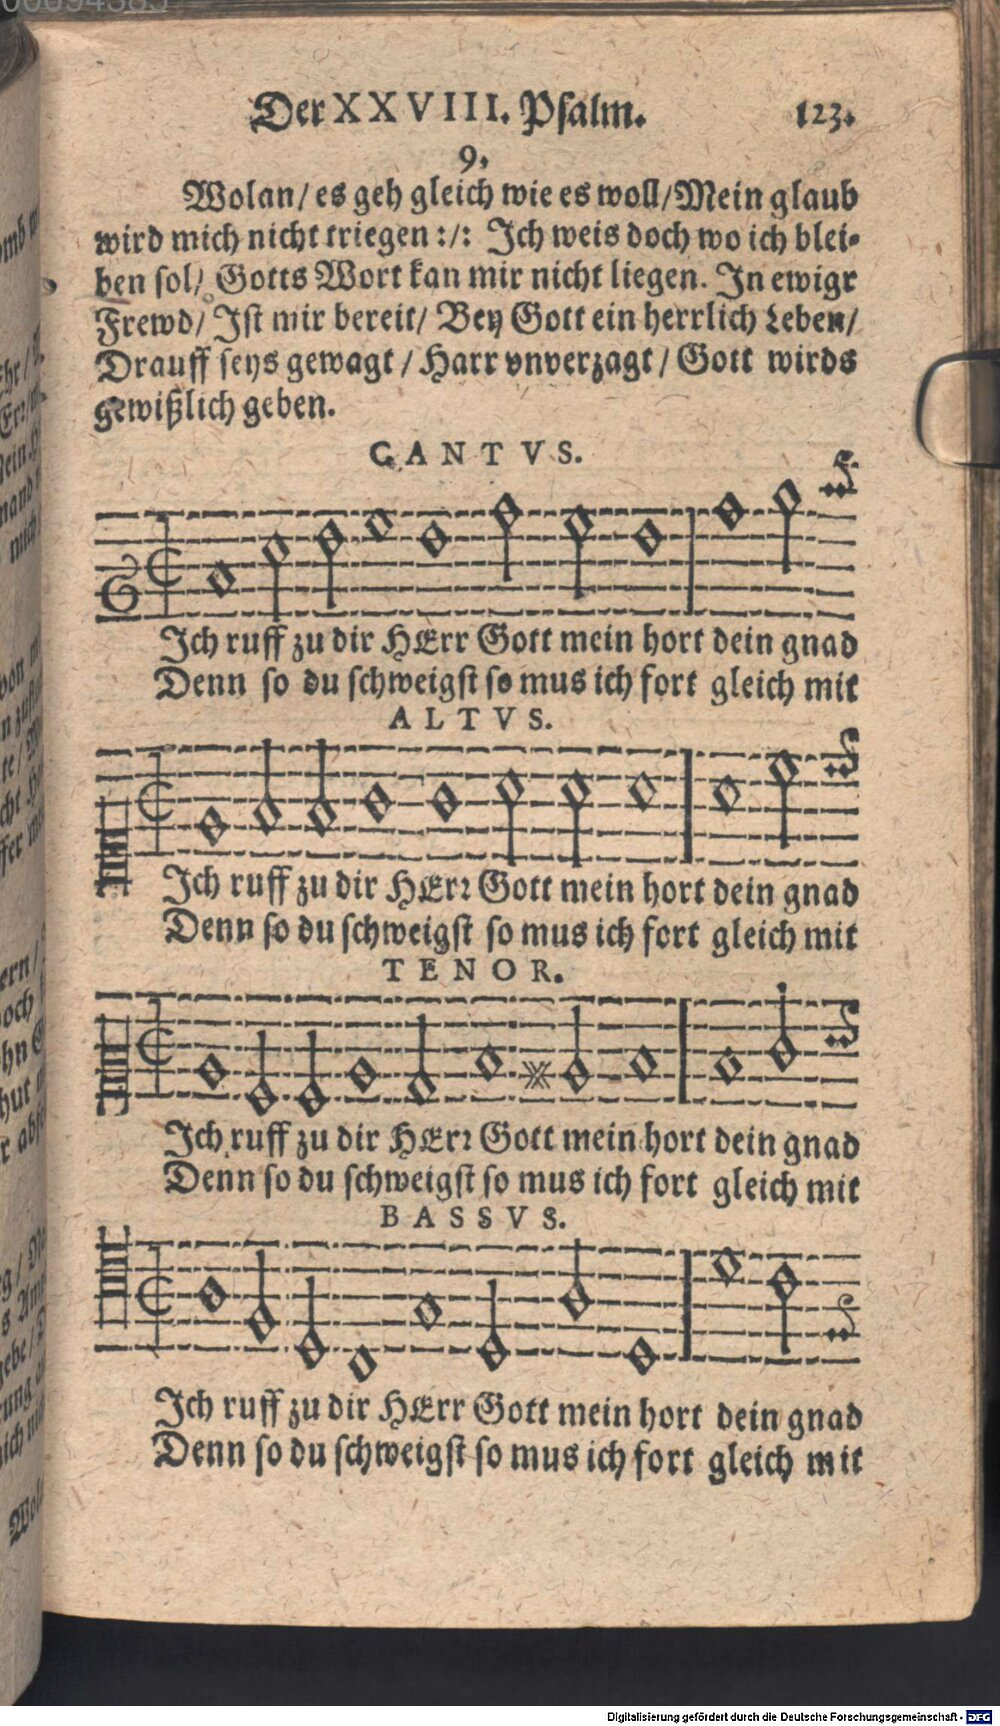 Der XXVIII. Psalm. 123.
9.
Wolan/ es geh gleich wie es woll/ Mein glaub
wird mich nicht triegen :/: Ich weis doch wo ich blei-
ben sol/ Gotts Wort kan mir nicht liegen. In ewigr
Frewd/ Ist mir bereit/ Bey Gott ein herrlich Leben/
Drauff seys gewagt/ Harr vnverzagt/ Gott wirds
gewißlich geben.
CANTVS.
Ich ruff zu dir HErr Gott mein hort dein gnad
Denn so du schweigst so mus ich fort gleich mit
ALTVS.
Ich ruff zu dir HErr Gott mein hort dein gnad
Denn so du schweigst so mus ich fort gleich mit
TENOR.
Ich ruff zu dir HErr Gott mein hort dein gnad
Denn so du schweigst so mus ich fort gleich mit
BASSVS.
Ich ruff zu dir HErr Gott mein hort dein gnad
Denn so du schweigst so mus ich fort gleich mit
Digitalisierung gefördert durch die Deutsche Forschungsgemeinschaft - DFG